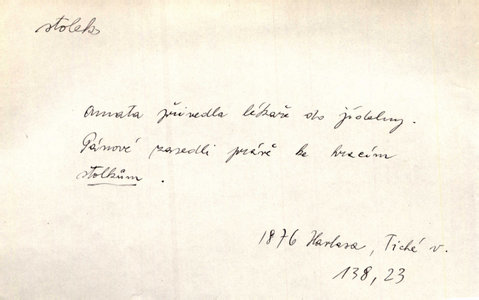 stolek
Amata přivedla lékaře do jídelny.
Pánové zasedli právě ke hracím
stolkům.
1876 Havlasa, Tiché v.
138, 23